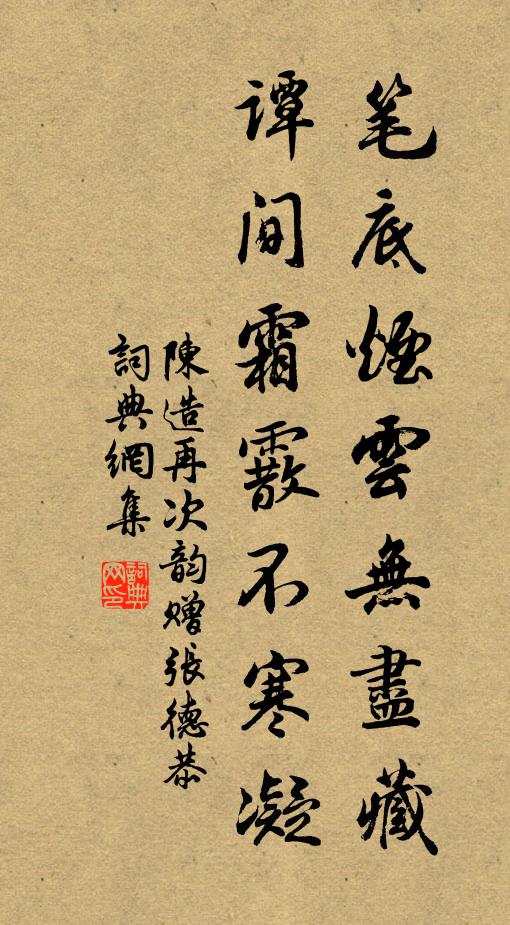 笔底煙雲無盡藏
谭间霜霰不寒凝
陳造再次韵赠張德恭
詞典網集
詞典網印